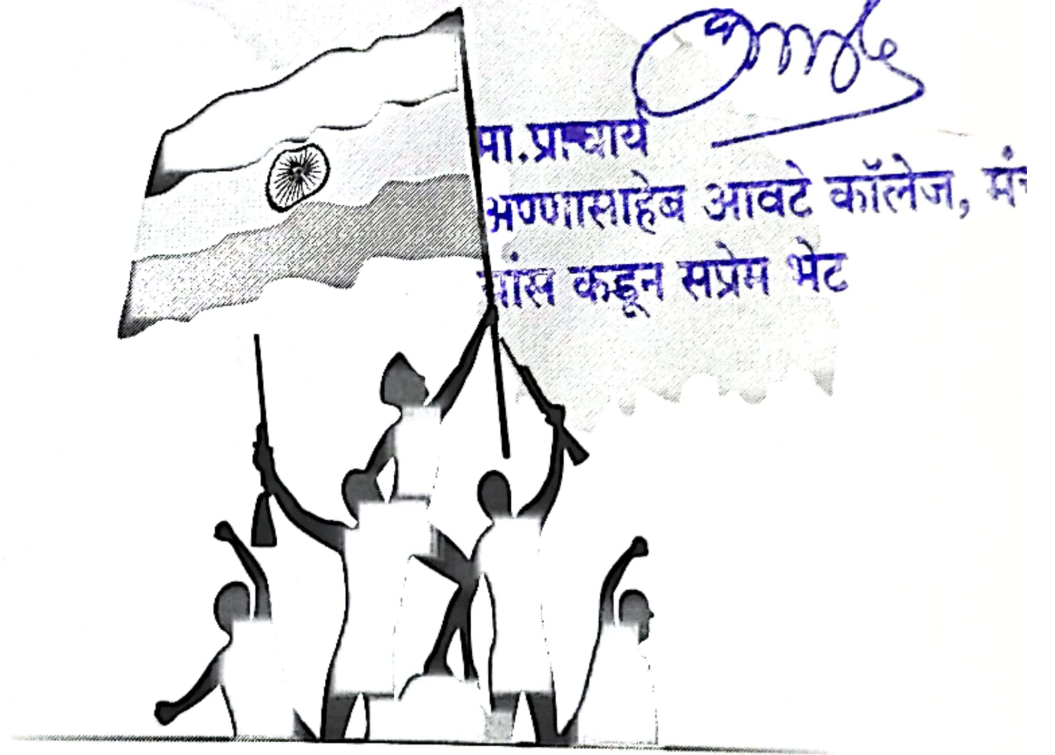 मा.प्राचार्य
अण्णासाहेब आवटे कॉलेज,
यांस कडून सप्रेम भेट